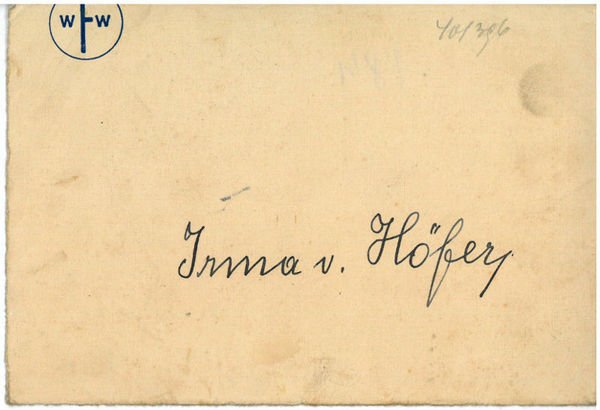 W F W
401396
Irma v. Höfer,